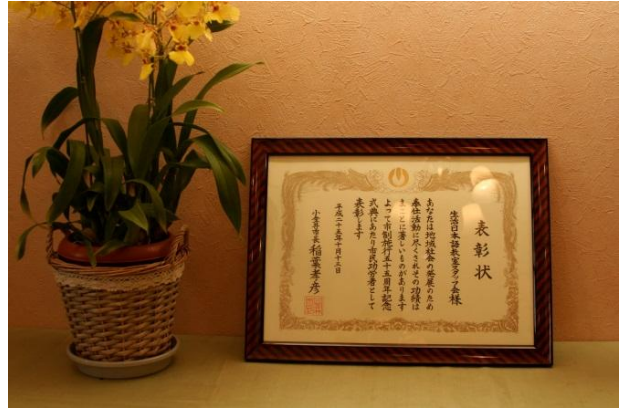 表彰状
生活日本語教室スタッフ会様
あなたは地域社会の発展のため
奉仕活動に尽くされその功績は
まことに著しいものがあります
よって市制施行五十五周年記念
式典にあたり市民功労者として
表彰します
平成二十五年十月十三日
小金井市長 稲葉孝彦